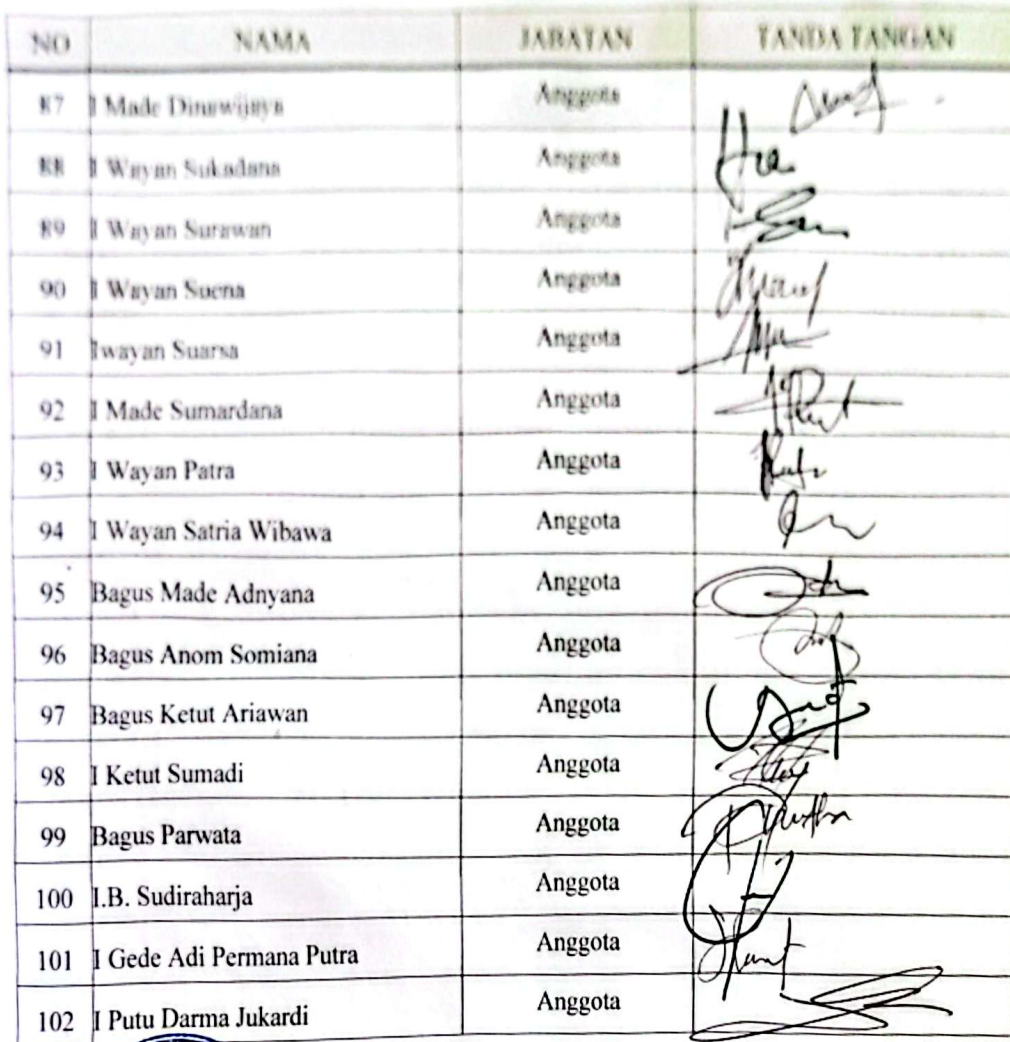 NO NAMA JABATAN TANDA TANGAN
87 I Made Dinawijaya Anggota
88 I Wayan Sukadana Anggota
89 I Wayan Surawan Anggota
90 I Wayan Suena Anggota
91 Iwayan Suarsa Anggota
92 I Made Sumardana Anggota
93 I Wayan Patra Anggota
94 I Wayan Satria Wibawa Anggota
95 Bagus Made Adnyana Anggota
96 Bagus Anom Somiana Anggota
97 Bagus Ketut Ariawan Anggota
98 I Ketut Sumadi Anggota
99 Bagus Parwata Anggota
100 I.B. Sudiraharja Anggota
101 I Gede Adi Permana Putra Anggota
102 I Putu Darma Jukardi Anggota